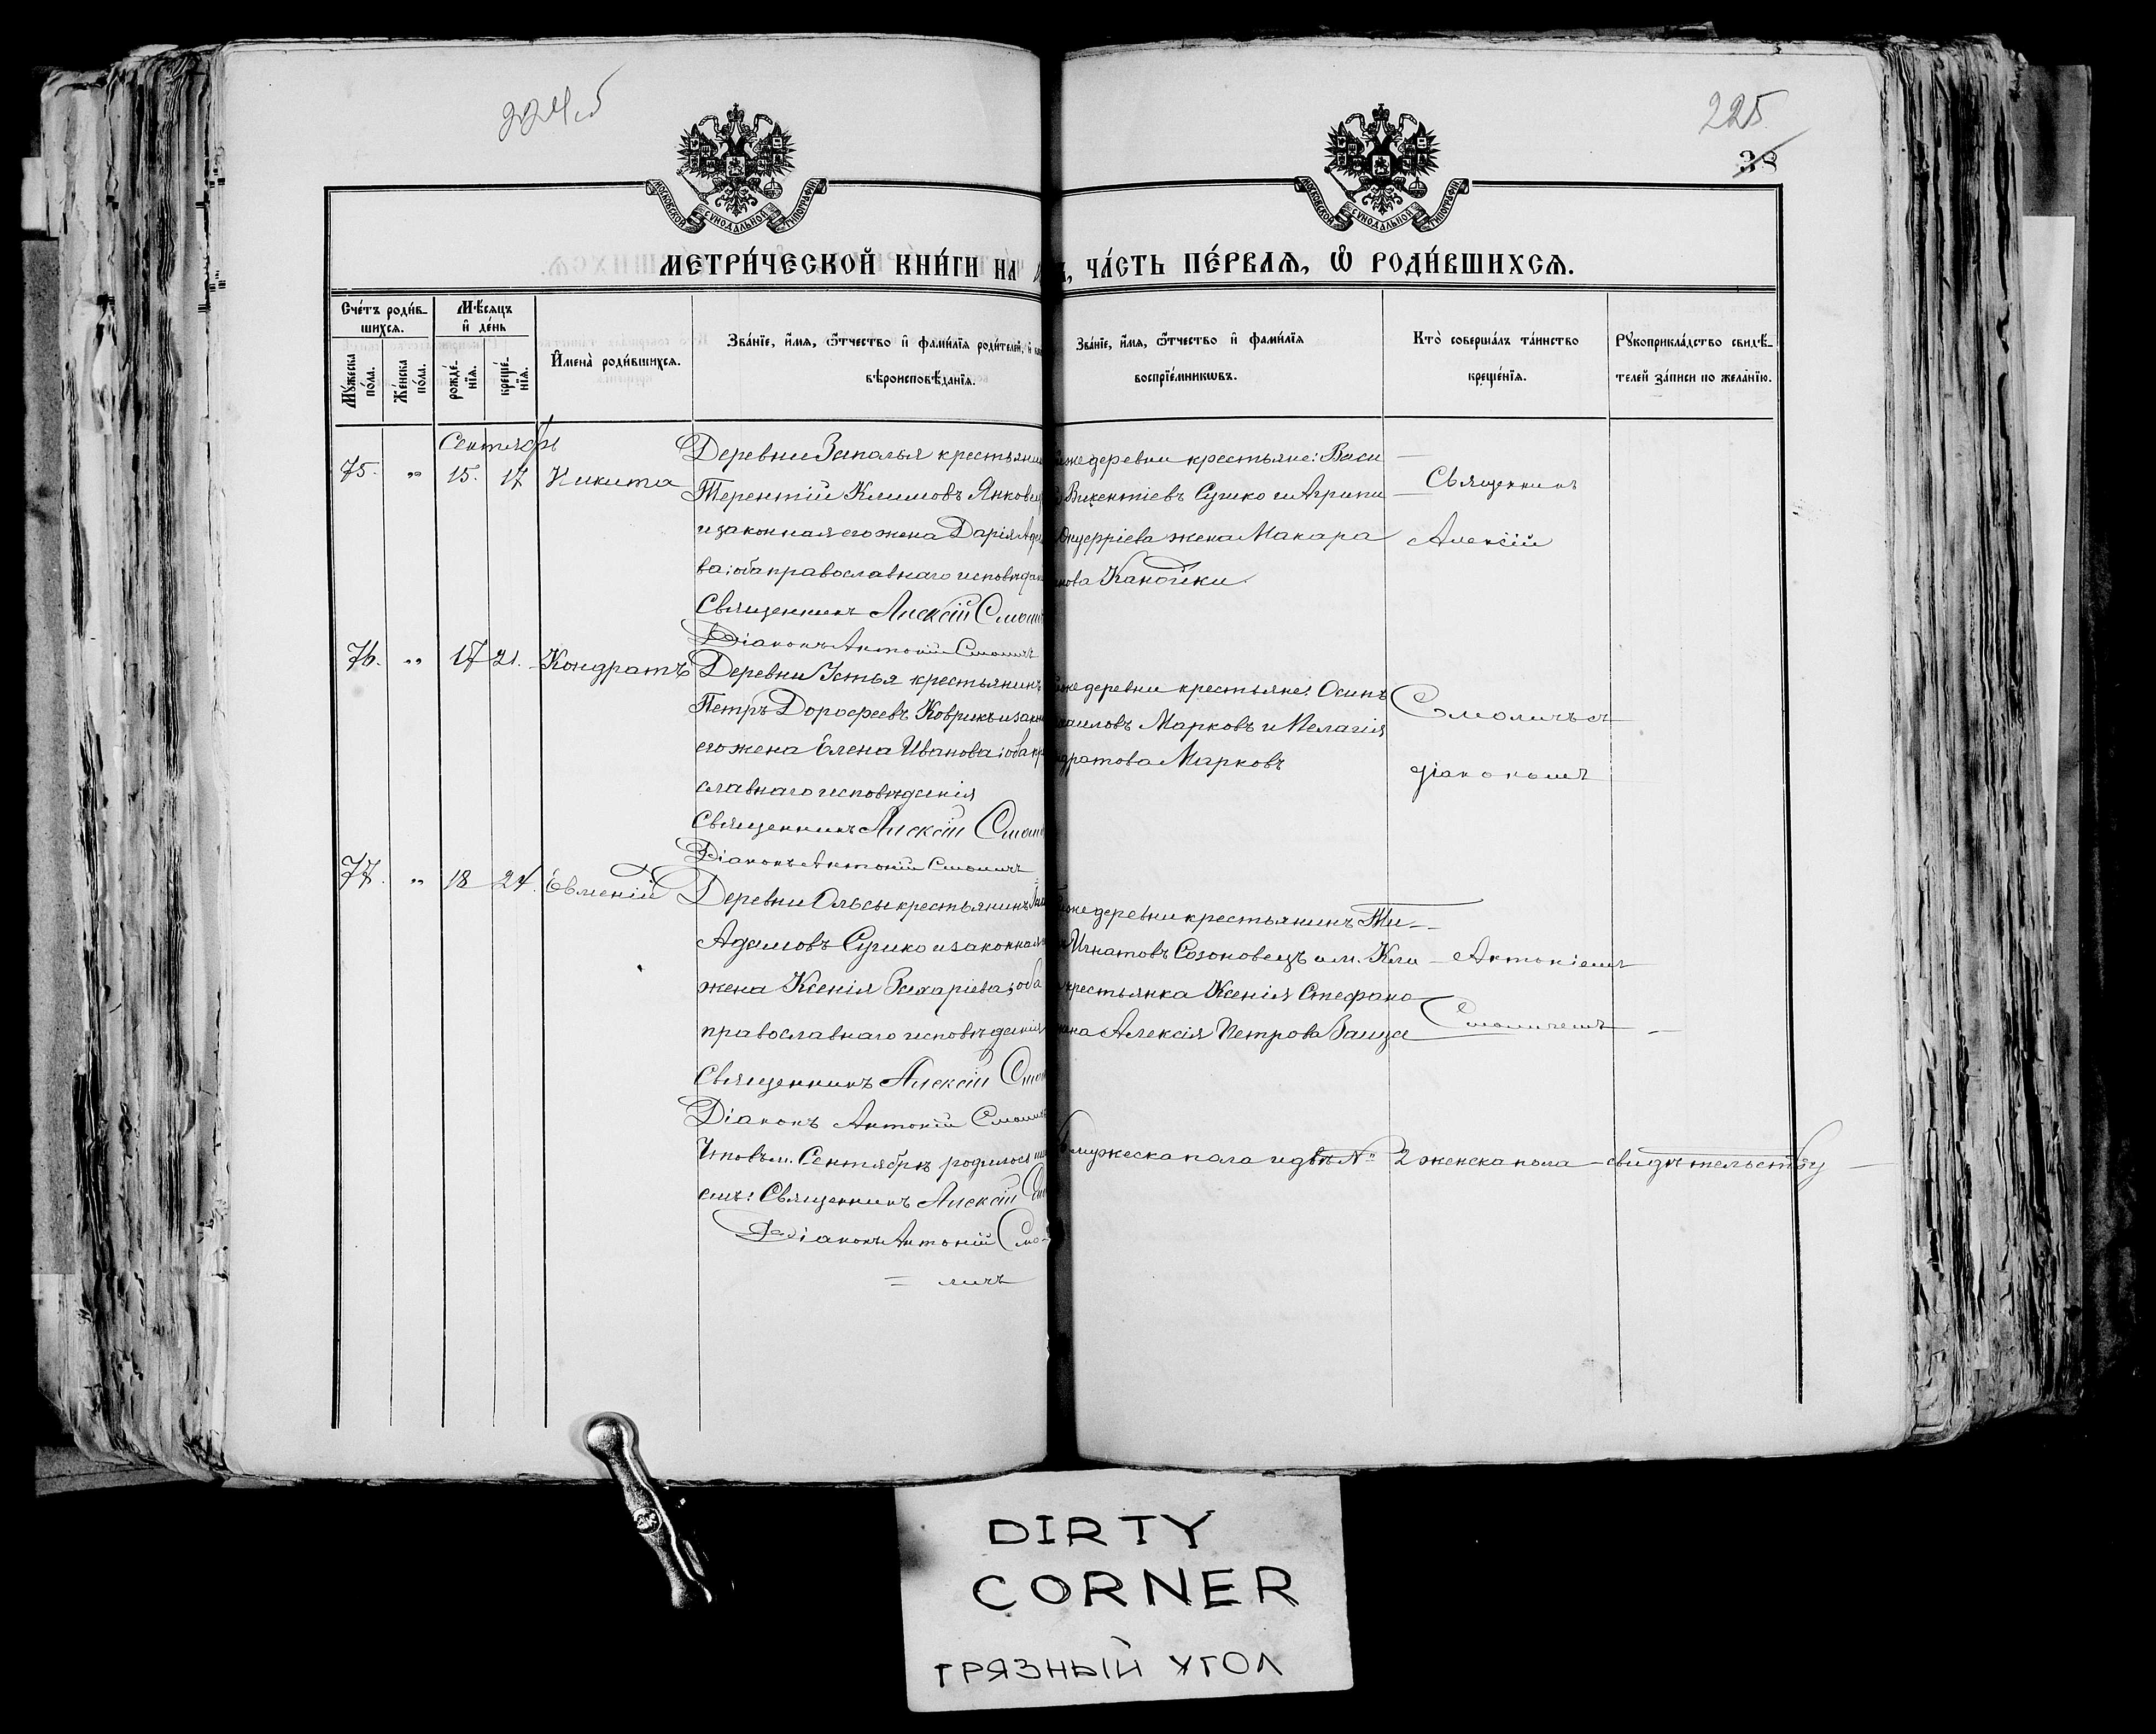 224об
225.
38
МОСКОВСКОЙ СѴНОДАЛЬНОЙ ТИПОГРАФІИ
МОСКОВСКОЙ СѴНОДАЛЬНОЙ ТИПОГРАФІИ
МЕТРИ́ЧЕСКОЙ КНИ́ГИ НА
ЧА́СТЬ ПЕ́РВАЯ, Ѿ РОДИ́ВШИХСЯ.
Сче́тъ роди́в-
шихся.
Мꙋ́жеска по́ла.
Же́нска по́ла.
Мѣ́сяцъ и҆ де́нь
рожде́-нїѧ.
креще́-нїѧ.
И҆мена̀ роди́вшихся.
Зва́нїе, и҆́мя, ѻ҆́тчество и҆ фами́лїя роди́телей, и҆
вѣроисповѣ́данїя.
Зва́нїе, и҆́мя, ѻ҆́тчество и҆ фами́лїя
воспрїе́мниковъ.
Кто̀ соверша́лъ та́инство
креще́нїя.
Рꙋкоприкла́дство свидѣ́-
телей за́писи по жела́нїю.
Сентябрь
75. „ 15. 17 Никита
Деревни Заполья крестьянин
Терентій Климовъ Янковец
и законная его жена Дарія
ва; оба православнаго исповѣдан
Священникъ Алексій Смоли
Діаконъ Антоній Смоличъ
деревни крестьяне: Васи
Викентіевъ Сушко и Агрипи
Онуфріева жена Макара
Канойки
Священникъ
Алексій
76. „ 17 21. Кондратъ
Деревни Устья крестьянинъ
Петръ Дорофеевъ Коврикъ и закон
его жена Елена Иванова; оба пр
славнаго исповѣданія
Священникъ Алексій Смоли
Діаконъ Антоній Смоличъ
деревни крестьяне: Осипъ
Марковъ и Пелагія
дратова Марковъ
Смоличъ съ
діакономъ
77. „ 18 24. Евменій
Деревни Ольсы крестьянинъ
Адамовъ Сушко и законная
жена Ксенія Захаріева; оба
православнаго исповѣданія
Священникъ Алексій Смол
Діаконъ Антоній Смолич
деревни крестьянинъ Ти-
Игнатовъ Созоновецъ и м. Кли
крестьянка Ксенія Стефано
жена Алексія Петрова Заица
Антоніемъ
Смоличемъ
Что въ м. Сентябрѣ родилося
мужеска пола и двѣ № 2 женска пола свидѣтельству
емъ: Священникъ Алексій Смо
Діаконъ Антоній Смо-
= личъ
DIRTY
CORNER
ГРЯЗНЫЙ УГОЛ